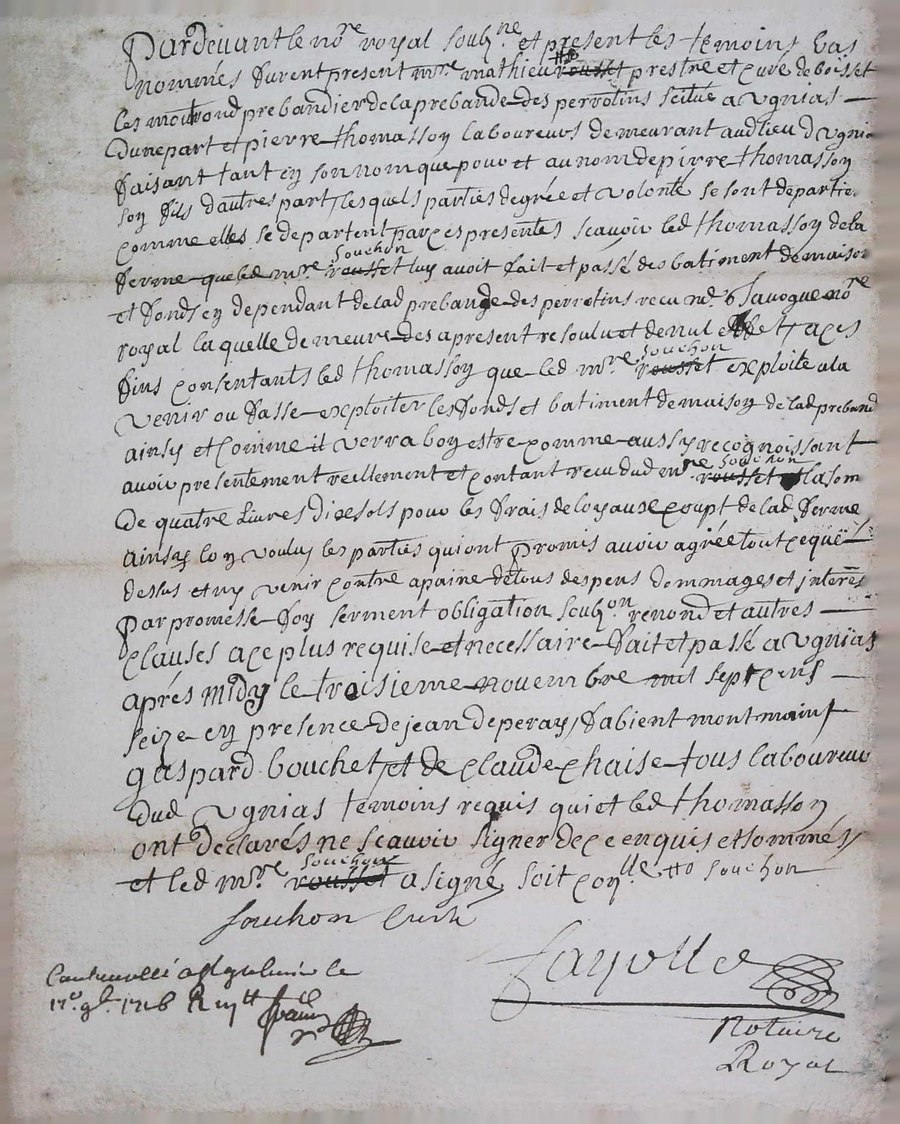 Pardevant le no.re royal soub.ne et present les temoins bas
nommés furent present m.re mathieu rousset prestre et curé de boisset
les montrond prebandier de la prebande des perrotins scitué a ugnias
Dune part et pierre thomasson laboureurs demeurant aud lieu dugnia
faisant tant en son nom que pour et au nom de pirre thomasson
son fils dautres part lesquels parties de grée et volonté se sont departie
comme elles se departent par ces presentes scavoir led thomasson de la
souchon
ferme que led m.re rousset luy avoit fait et passé des batiment de maison
et fonds en dependant de lad prebande des perrotins recu m.e no.re
royal laquelle demeure des apresent resoulu et de nul effet a ces
souchon
fins consentants led thomasson que led m.re rousset exploite a la
venir ou fasse exploiter les fonds et batiment de maison de lad preband
ainsy et comme il verra bon estre comme aussy recognoissant
souchon
avoir presentement reellement et contant recu dud m.re rousset la som
De quatre livres dix sols pour les frais de loyause coupt de lad ferme
ainsy lon voulu les parties qui ont promis avoir agrée tout ce que
dessus et ny venir contre a paine de tous despens dommages et interés
par promesse foy serment obligation soub.on renond et autres
clauses a ce plus requise et necessaire fait et passé a ugnias
aprés midy le troisieme novembre mil sept cens
seize en presence de jean deperay, fabient montmaint
gaspard bouchet, et de claude chaise tous laboureur
dud ugnias temoins requis qui et led thomasson
ont declarés ne scavoir signer de ce enquis et sommés
souchon
et led m.re rousset a signé, soit con.lle souchon
souchon curé
Fayolle
notaire
Royal
le
1716